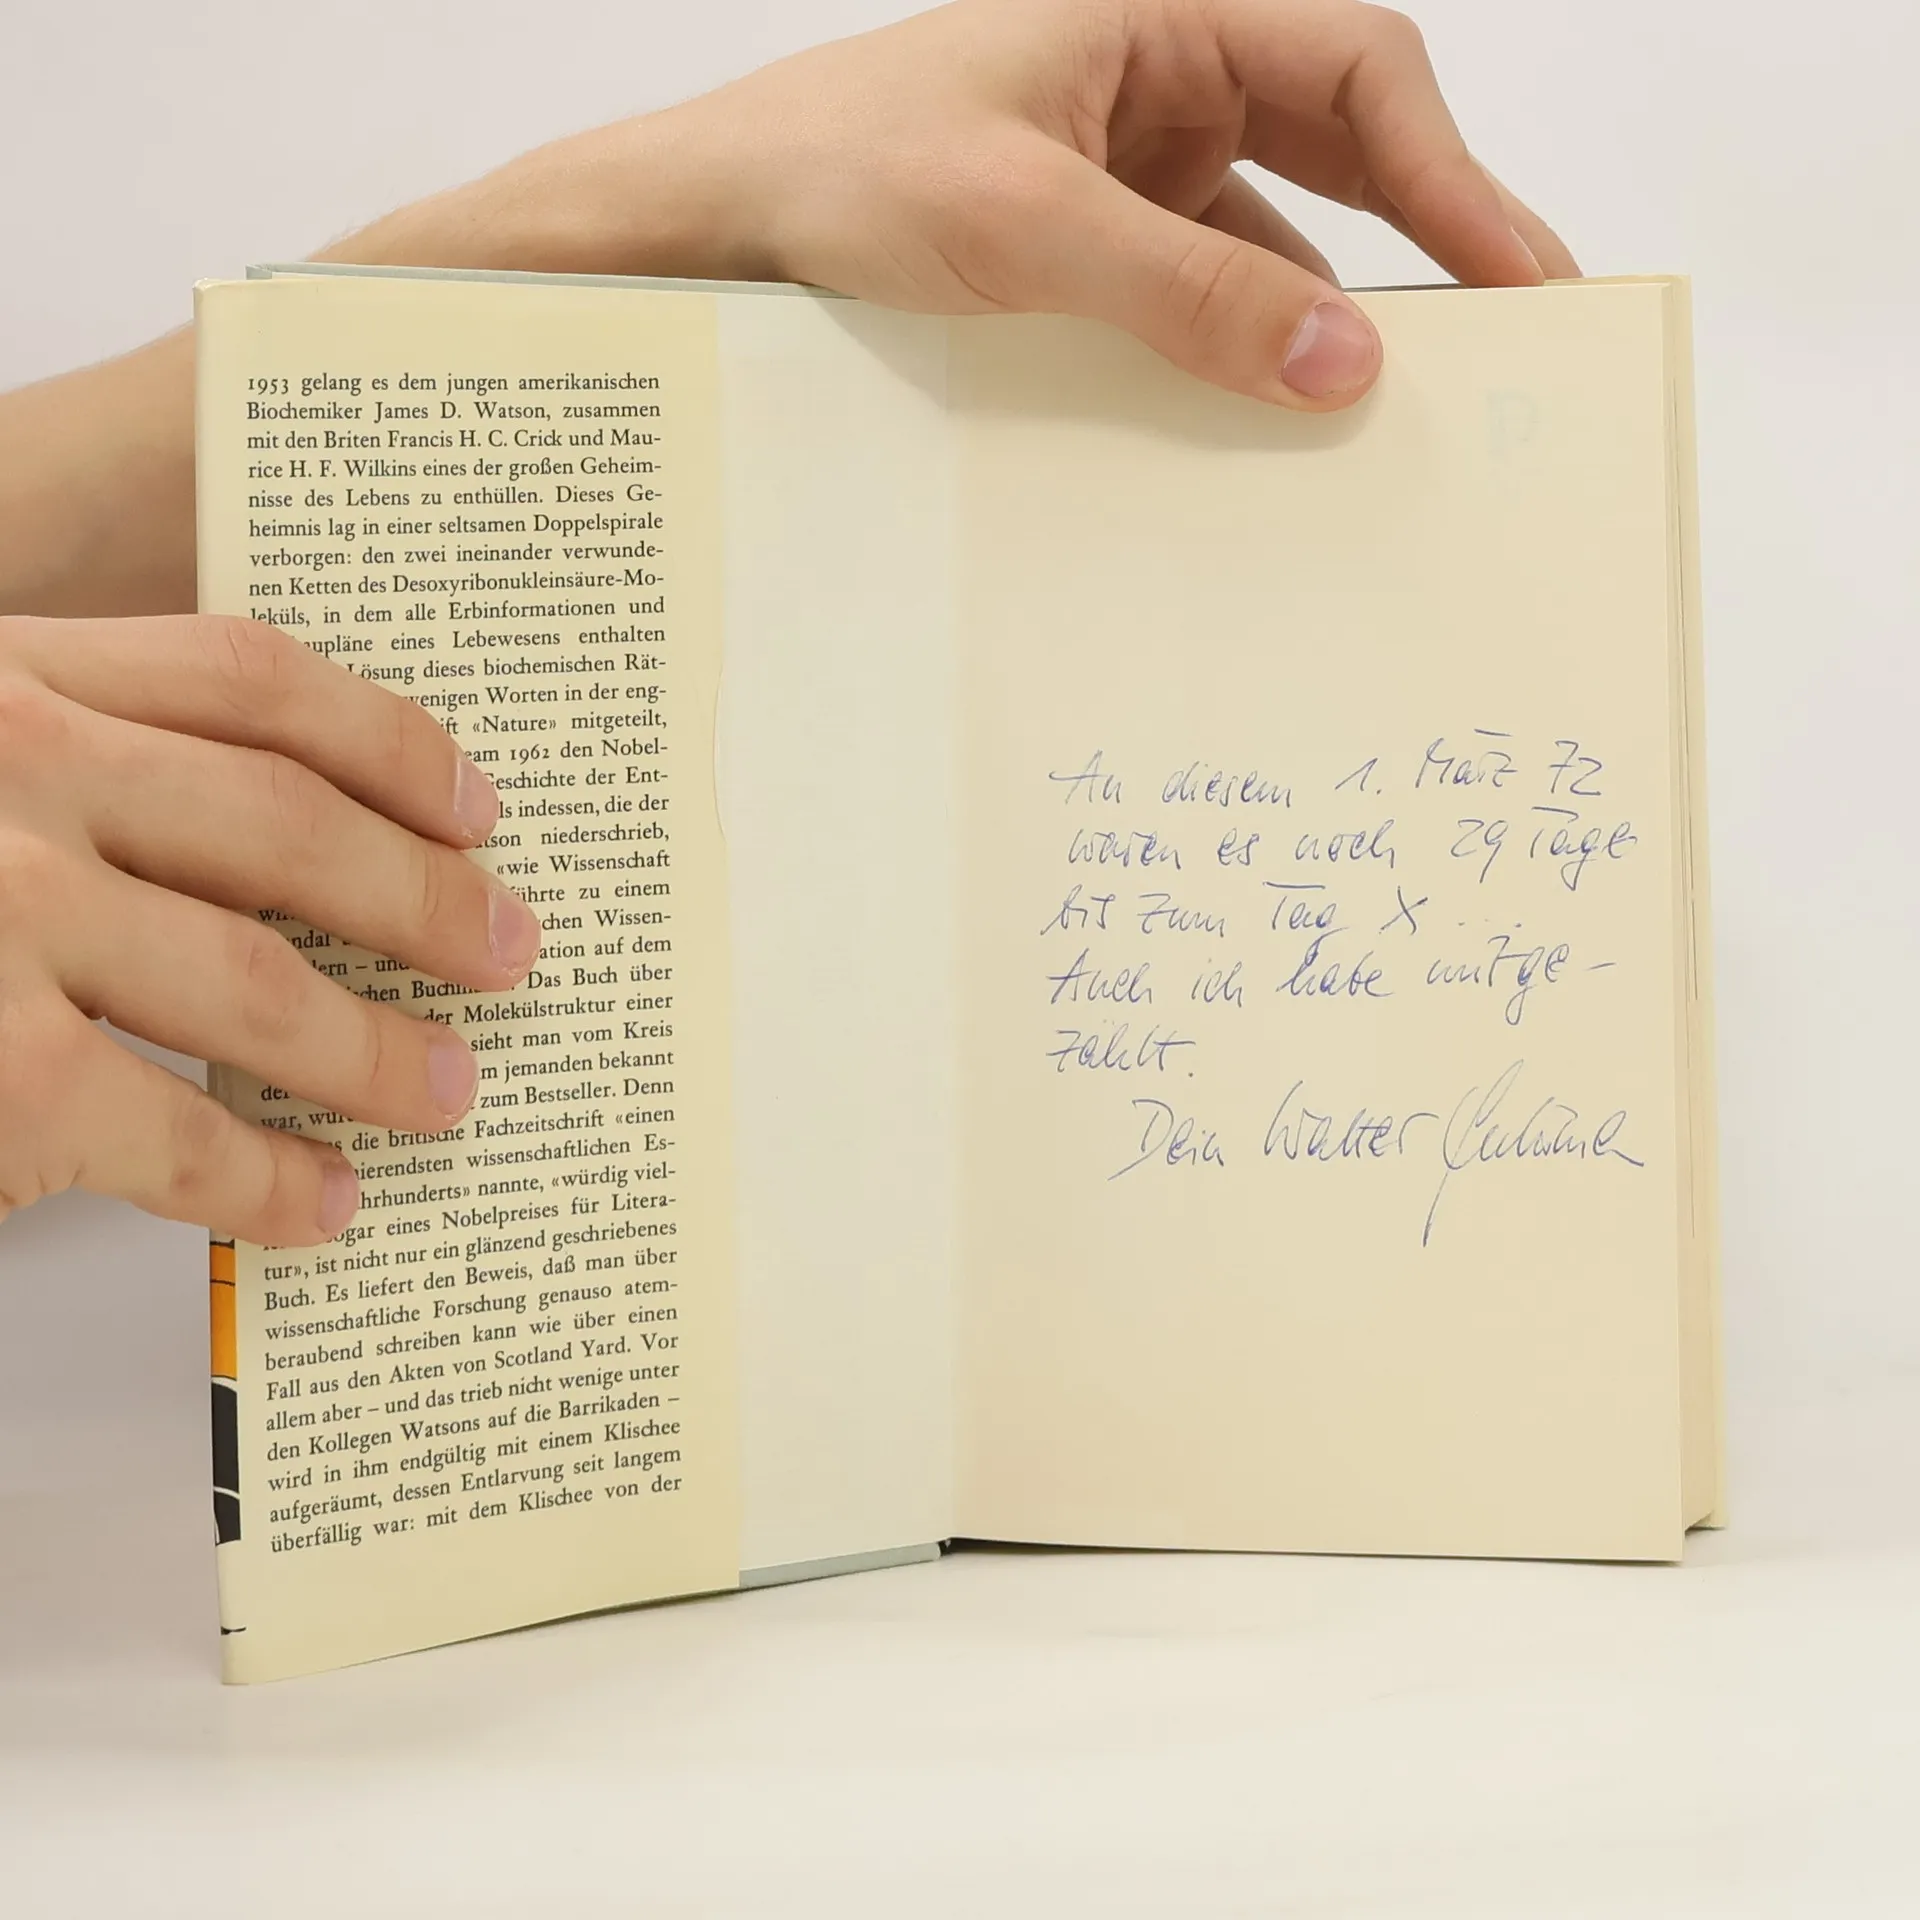 1953 gelang es dem jungen amerikanischen
Biochemiker James D. Watson, zusammen
mit den Briten Francis H. C. Crick und Mau-
rice H. F. Wilkins eines der großen Geheim-
nisse des Lebens zu enthüllen. Dieses Ge-
heimnis lag in einer seltsamen Doppelspirale
verborgen: den zwei ineinander verwunde-
nen Ketten des Desoxyribonukleinsäure-Mo-
leküls, in dem alle Erbinformationen und
eines Lebewesens enthalten
Lösung dieses biochemischen Rät-
wenigen Worten in der eng-
«Nature» mitgeteilt,
1962 den Nobel-
Geschichte der Ent-
indessen, die der
niederschrieb,
«wie Wissenschaft
zu einem
Wissen-
auf dem
Das Buch über
der Molekülstruktur einer
sieht man vom Kreis
jemanden bekannt
zum Bestseller. Denn
war,
die britische Fachzeitschrift «einen
wissenschaftlichen Es-
nannte, «würdig viel-
eines Nobelpreises für Litera-
tur», ist nicht nur ein glänzend geschriebenes
Buch. Es liefert den Beweis, daß man über
wissenschaftliche Forschung genauso atem-
beraubend schreiben kann wie über einen
Fall aus den Akten von Scotland Yard. Vor
allem aber – und das trieb nicht wenige unter
den Kollegen Watsons auf die Barrikaden –
wird in ihm endgültig mit einem Klischee
aufgeräumt, dessen Entlarvung seit langem
überfällig war: mit dem Klischee von der
An diesem 1. März 72
waren es noch 29 Tage
bis zum Tag X ...
Auch ich habe mitge-
zählt.
Dein Walter